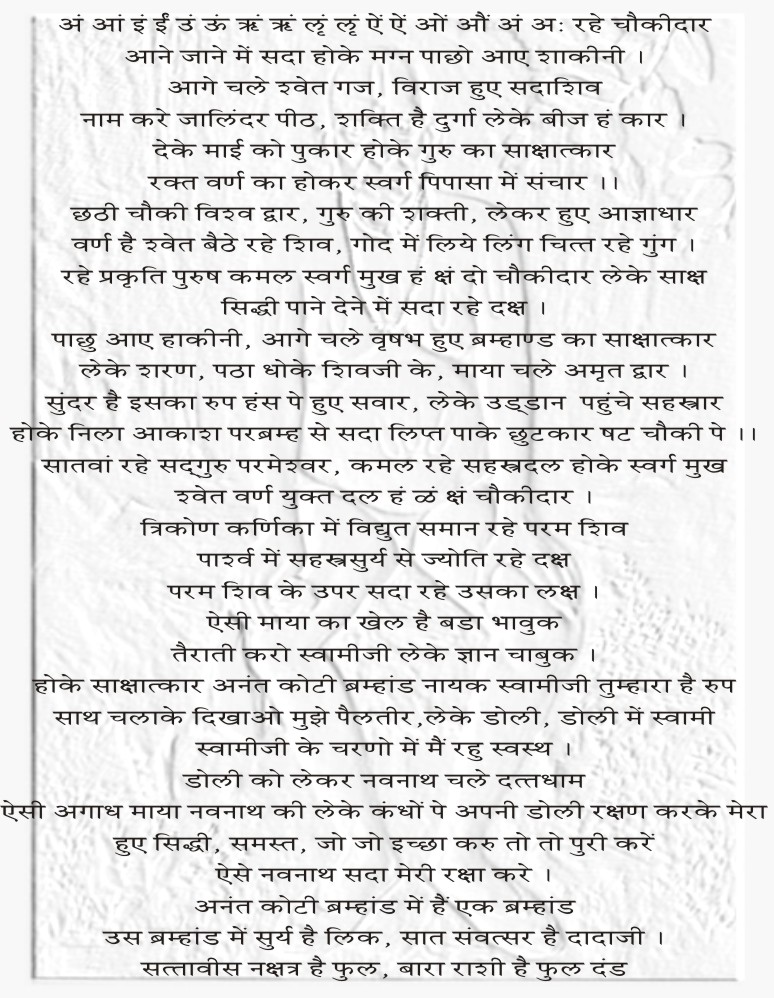 अं आं इं ईं उं ऊं ऋं ऋं लृं लृं ऐं ऐं ओं औं अं अः रहे चौकीदार
आने जाने में सदा होके मग्न पाछो आए शाकीनी ।
आगे चले श्वेत गज, विराज हुए सदाशिव
नाम करे जालिंदर पीठ, शक्ति है दुर्गा लेके बीज हं कार ।
देके माई को पुकार होके गुरु का साक्षात्कार
रक्त वर्ण का होकर स्वर्ग पिपासा में संचार ।।
छठी चौकी विश्व द्वार, गुरु की शक्ती, लेकर हुए आज्ञाधार
वर्ण है श्वेत बैठे रहे शिव, गोद में लिये लिंग चित्त रहे गुंग ।
रहे प्रकृति पुरुष कमल स्वर्ग मुख हं क्षं दो चौकीदार लेके साक्ष
सिद्धी पाने देने में सदा रहे दक्ष ।
पाछु आए हाकीनी, आगे चले वृषभ हुए ब्रम्हाण्ड का साक्षात्कार
लेके शरण, पठा धोके शिवजी के, माया चले अमृत द्वार ।
सुंदर है इसका रुप हंस पे हुए सवार, लेके उड्डान पहुंचे सहस्त्रार
होके निला आकाश परब्रम्ह से सदा लिप्त पाके छुटकार षट चौकी पे ।।
सातवां रहे सद्गुरु परमेश्वर, कमल रहे सहस्त्रदल होके स्वर्ग मुख
श्वेत वर्ण युक्त दल हं ळं क्षं चौकीदार ।
त्रिकोण कर्णिका में विद्युत समान रहे परम शिव
पार्श्व में सहस्त्रसुर्य से ज्योति रहे दक्ष
परम शिव के उपर सदा रहे उसका लक्ष ।
ऐसी माया का खेल है बडा भावुक
तैराती करो स्वामीजी लेके ज्ञान चाबुक ।
होके साक्षात्कार अनंत कोटी ब्रम्हांड नायक स्वामीजी तुम्हारा है रुप
साथ चलाके दिखाओ मुझे पैलतीर,लेके डोली, डोली में स्वामी
स्वामीजी के चरणो में मैं रहु स्वस्थ ।
डोली को लेकर नवनाथ चले दत्तधाम
ऐसी अगाध माया नवनाथ की लेके कंधों पे अपनी डोली रक्षण करके मेरा
हुए सिद्धी, समस्त, जो जो इच्छा करु तो तो पुरी करें
ऐसे नवनाथ सदा मेरी रक्षा करे ।
अनंत कोटी ब्रम्हांड में हैं एक ब्रम्हांड
उस ब्रम्हांड में सुर्य है लिक, सात संवत्सर है दादाजी ।
सत्तावीस नक्षत्र है फुल, बारा राशी है फुल दंड